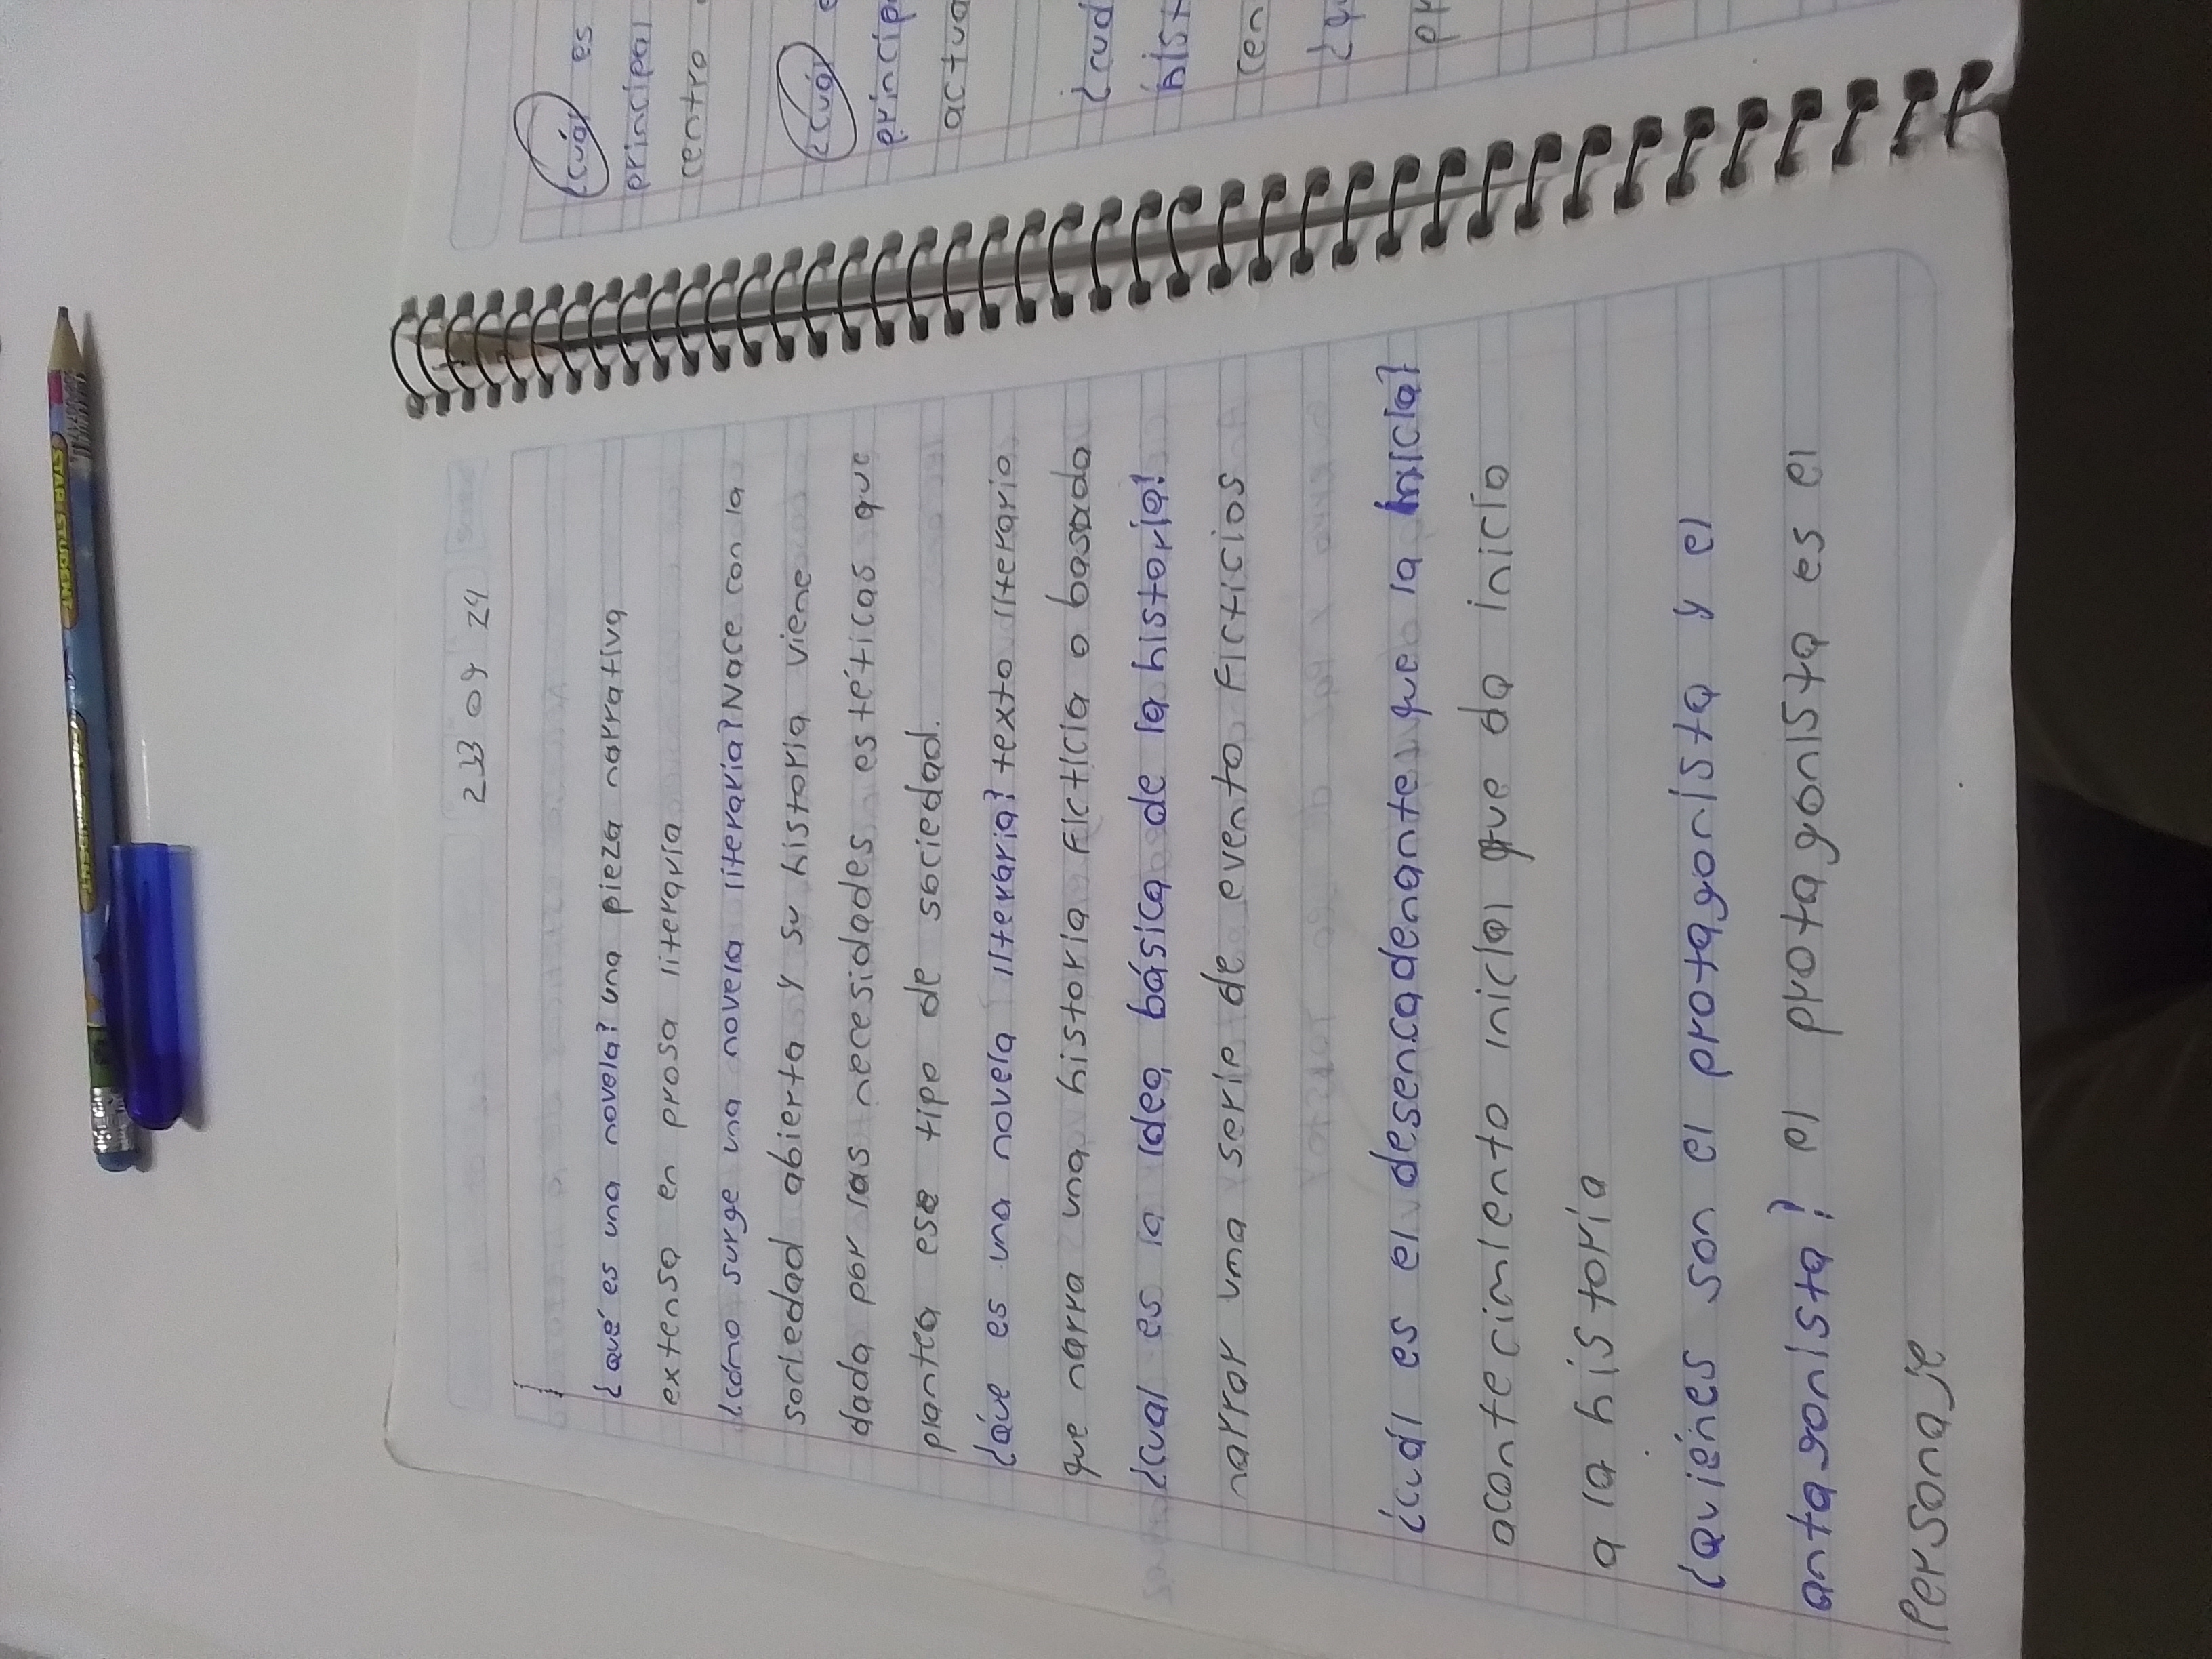 23 09 24
¿qué es una novela? una pieza narrativa
extensa en prosa literaria
¿cómo surge una novela literaria? Nace con la
sociedad abierta y su historia viene
dada por las necesidades estéticas que
plantea ese tipo de sociedad.
¿que es una novela literaria? texto literario
que narra una historia ficticia o basada
¿cual es la idea básica de la historia?
narrar una serie de evento ficticios
¿cuál es el desencadenante que la inicia?
acontecimiento inicial que da inicio
a la historia
¿quiénes son el protagonista y el
antagonista? el protagonista es el
Personaje
¿cuál es
principal
centro
¿cuál
princip
actua
¿cuá
hist
cen
¿qu
pr
STAR STUDENT
STAR STUDENT